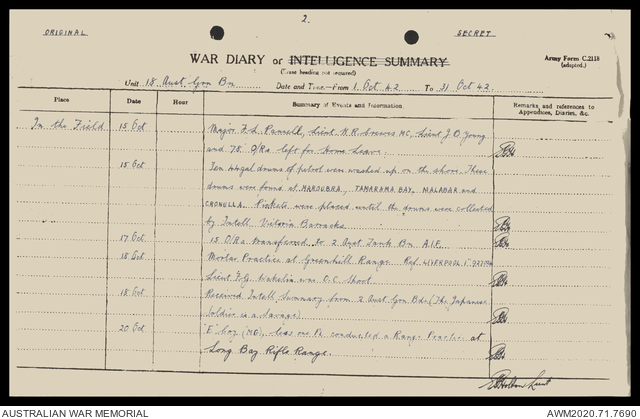 2.
ORIGINAL
SECRET
WAR DIARY or INTELLIGENCE SUMMARY
(Erase heading not required)
Army Form C.2118
(adapted.)
Unit 18 Aust Grn Bn Date and Time—From 1 Oct 42 To 31 Oct 42.
Place Date Hour Summary of Events and Information Remarks and references to
Appendices, Diaries, &c.
In the Field 15 Oct Major F.L. Lieut N.R. MC, Lieut J.O. Young
and 75 O/Rs left for Home Leave.
15 Oct Ten drums of petrol were washed up on the shore. These
drums were found at MAROUBRA, TAMARAMA BAY, MALABAR and
CRONULLA. Pickets were placed until the drums were collected
by Intell Victoria Barracks
17 Oct 15 O/Rs transferred to 2 Aust Tank Bn A.I.F.
18 Oct Mortar Practice at Greenhill Range Ref. LIVERPOOL 1"
Lieut F.G. Wakelin was O.C. Shoot.
18 Oct Received Intell Summary from 2 Aust Grn Bde (The Japanese
Soldier is a Savage)
20 Oct 'E' Coy (MG), less one Pl conducted a Range Practice at
Long Bay Rifle Range.
Lieut
AUSTRALIAN WAR MEMORIAL
AWM2020.71.7690